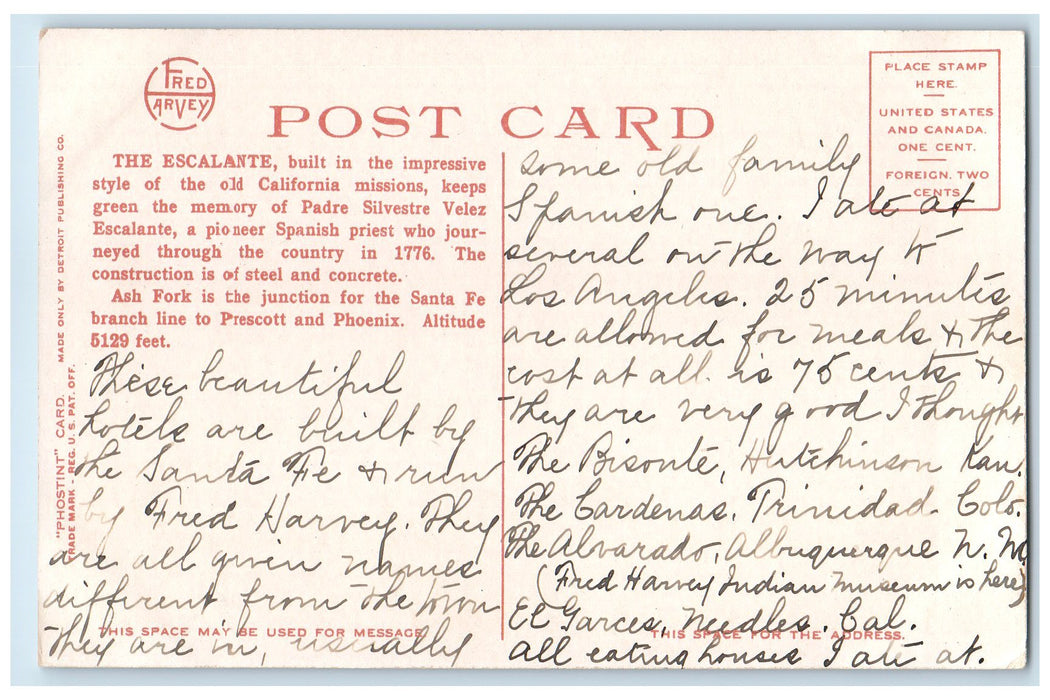 FRED
HARVEY
POST CARD
PLACE STAMP
HERE.
UNITED STATES
AND CANADA.
ONE CENT.
FOREIGN. TWO
CENTS
"PHOSTINT" CARD. MADE ONLY BY DETROIT PUBLISHING CO.
TRADE MARK - REG. U. S. PAT. OFF.
THE ESCALANTE, built in the impressive
style of the old California missions, keeps
green the memory of Padre Silvestre Velez
Escalante, a pioneer Spanish priest who jour-
neyed through the country in 1776. The
construction is of steel and concrete.
Ash Fork is the junction for the Santa Fe
branch line to Prescott and Phoenix. Altitude
5129 feet.
These beautiful
hotels are built by
the Santa Fe & run
by Fred Harvey. They
are all given names
different from the town
they are in, usually
THIS SPACE MAY BE USED FOR MESSAGE
some old family
Spanish one. I ate at
several on the way to
Los Angeles. 25 minutes
are allowed for meals & the
cost at all is 75 cents &
they are very good I thought
The Bisonte, Hutchinson Kan.
The Cardenas. Trinidad. Colo.
The Alvarado, Albuquerque N. M.
(Fred Harvey Indian Museum is here)
El Garces, Needles. Cal.
THIS SPACE FOR THE ADDRESS.
all eating houses I ate at.